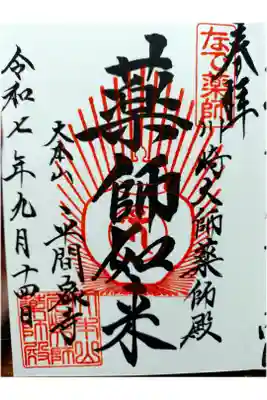 奉拝
なで薬師
川崎大師薬師殿
薬師如来
大本山 平間寺
令和七年九月十四日
大本山
川崎大師
薬師殿